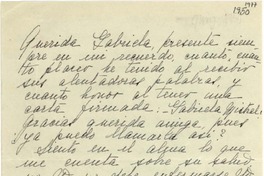 1977
1950
Querida Gabriela, presente siem-
pre en mi recuerdo, cuanto, cuan-
to placer he tenido al recibir
sus alentadoras palabras, y
cuanto honor al tener una
carta firmada. Gabriela Mistral.
gracias querida amiga, pues
¿ya puedo llamarla así?
Siento en el alma lo que
me cuenta sobre su salud,